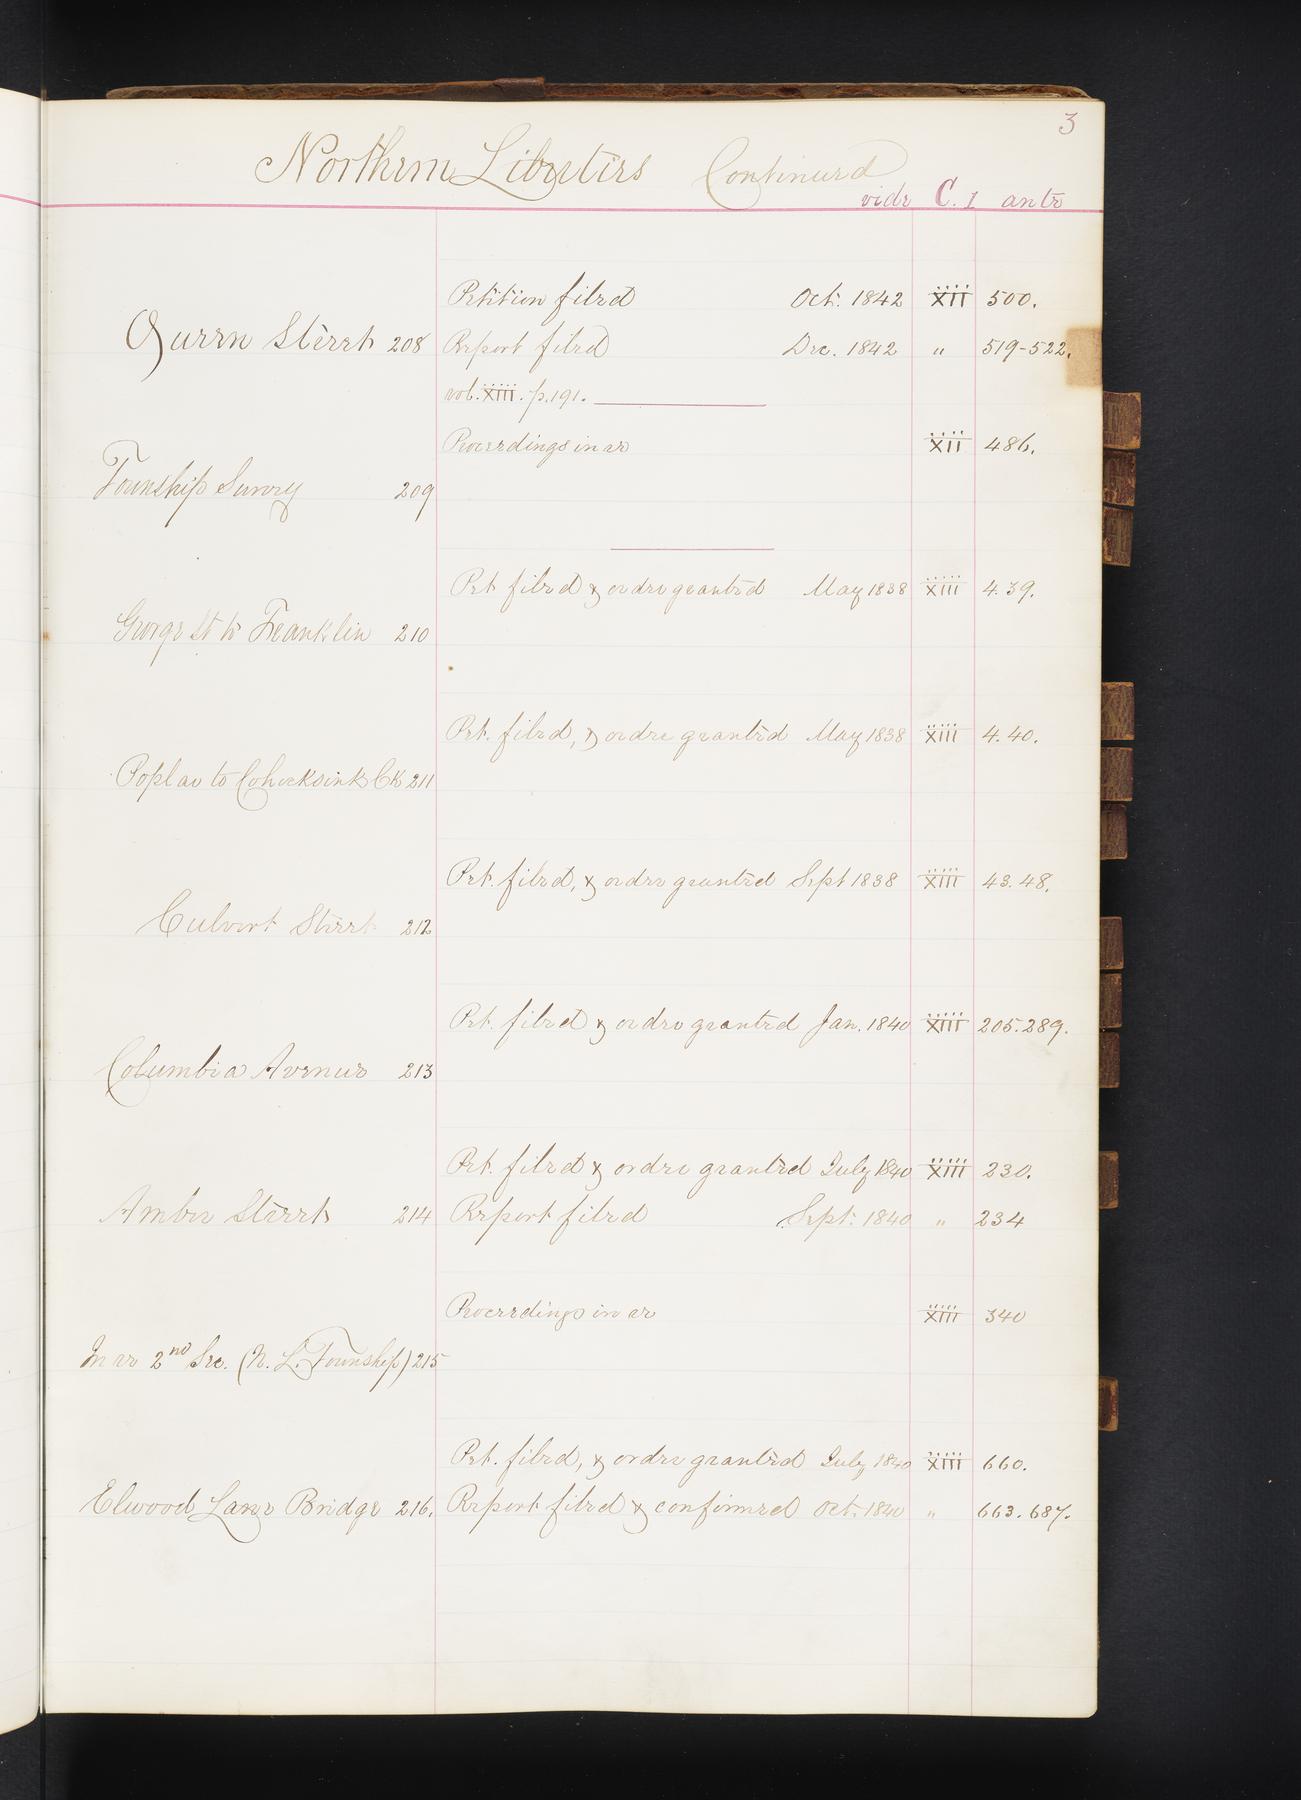 3
Northern Liberties Continued
vide C. 1 ante
Petition filed Oct. 1842 XII 500.
Queen Street 208 Report filed Dec. 1842 " 519-522.
vol. XIII. p. 191.
Proceedings in re XII 486.
Township Survey 209
Pet filed & order granted May 1838 XIII 4.39.
George St to Franklin 210
Pet. filed, & order granted May 1838 XIII 4.40.
Poplar to Cohocksink Ck 211
Pet. filed, & order granted Sept 1838 XIII 43.48.
Culvert Street 212
Pet. filed & order granted Jan. 1840 XIII 205.289.
Columbia Avenue 213
Pet. filed & order granted July 1840 XIII 230.
Amber Street 214 Report filed Sept. 1840 " 234
Proceedings in re XIII 340
In re 2nd Sec. (N. L. Township) 215
Pet. filed, & order granted July 1840 XIII 660.
Elwood Lane Bridge 216. Report filed & confirmed Oct. 1840 " 663.687.